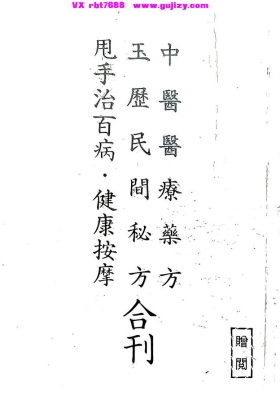 VX rbt7688 www.gujizy.com
中醫醫療藥方
玉歷民間秘方
甩手治百病·健康按摩
合刊
贈閱